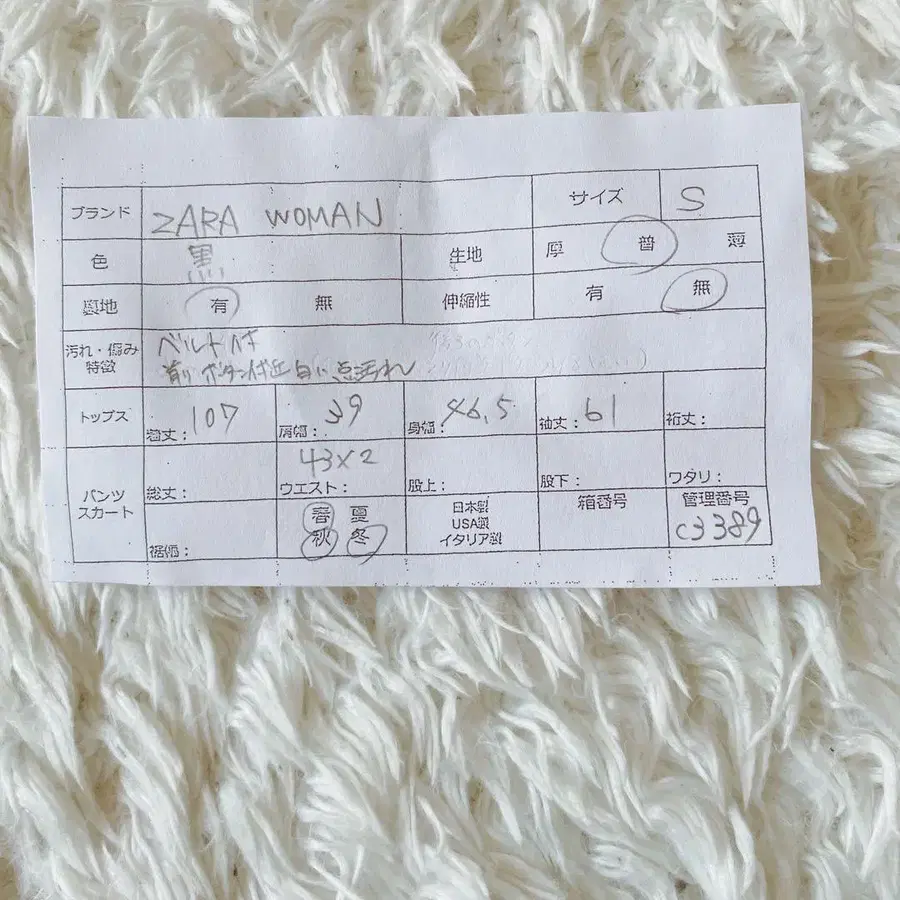 ブランド ZARA WOMAN サイズ S
色 黒 生地 厚 普 薄
裏地 有 無 伸縮性 有 無
汚れ・傷み 特徴 ベルト付
前リボタン付近 白い点汚れ
トップス 着丈: 107 肩幅: 39 身幅: 46.5 袖丈: 61 裄丈:
パンツ スカート 総丈: ウエスト: 43×2 股上: 股下: ワタリ:
裾幅: 春 夏 秋 冬 日本製 USA製 イタリア製 箱番号 管理番号 C3389